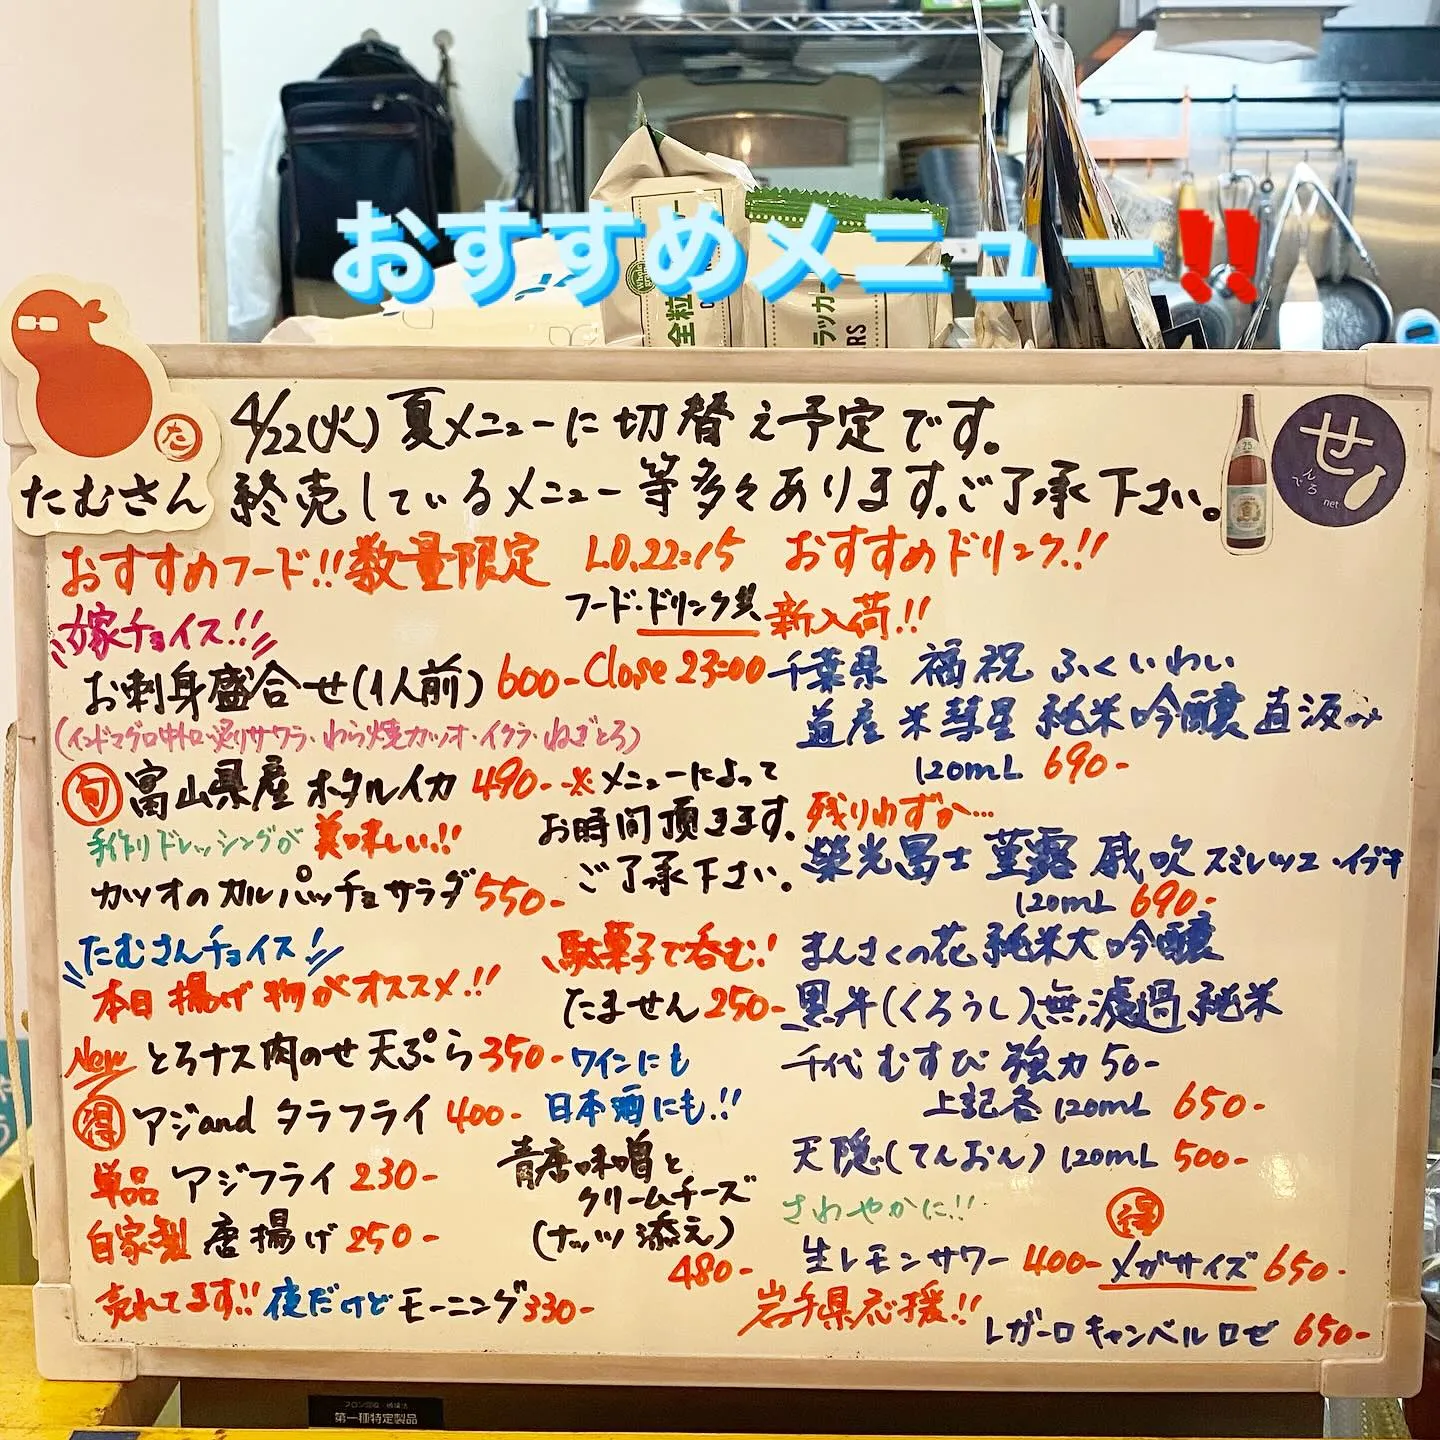 おすすめメニュー‼
全粒
ラッカー
RS
た
たむさん
せ
んでろ
net
4/22(火)夏メニューに切替え予定です。
終売しているメニュー等多々あります。ご了承下さい。
おすすめフード!!数量限定
L.O.22:15
フード・ドリンク共
Close 23:00
嫁チョイス!!
お刺身盛合せ(1人前) 600-
(インドマグロ中トロ・炙りサワラ・わら焼カツオ・イクラ・ねぎとろ)
旬 富山県産 ホタルイカ 490-
手作りドレッシングが 美味しい!!
カツオのカルパッチョサラダ 550-
※メニューによって
お時間頂きます。
ご了承下さい。
たむさんチョイス!!
本日揚げ物がオススメ!!
New とろナス肉のせ天ぷら 350-
得 アジand タラフライ 400-
単品 アジフライ 230-
自家製 唐揚げ 250-
売れてます!! 夜だけどモーニング 330-
駄菓子で呑む!
たません 250-
ワインにも
日本酒にも!!
青唐味噌と
クリームチーズ
(ナッツ添え)
480-
おすすめドリンク!!
新入荷!!
千葉県 福祝 ふくいわい
道産 米彗星 純米吟醸 直汲み
120mL 690-
残りわずか…
榮光冨士 菫露 威吹 スミレツユ・イブキ
120mL 690-
まんさくの花 純米大吟醸
黒牛(くろうし)無濾過純米
千代むすび 強力50-
上記各 120mL 650-
天隠(てんおん) 120mL 500-
さわやかに!!
生レモンサワー 400-
得
メガサイズ 650-
岩手県応援!!
レガーロ キャンベル ロゼ 650-
フロン回収・破壊法
第一種特定製品